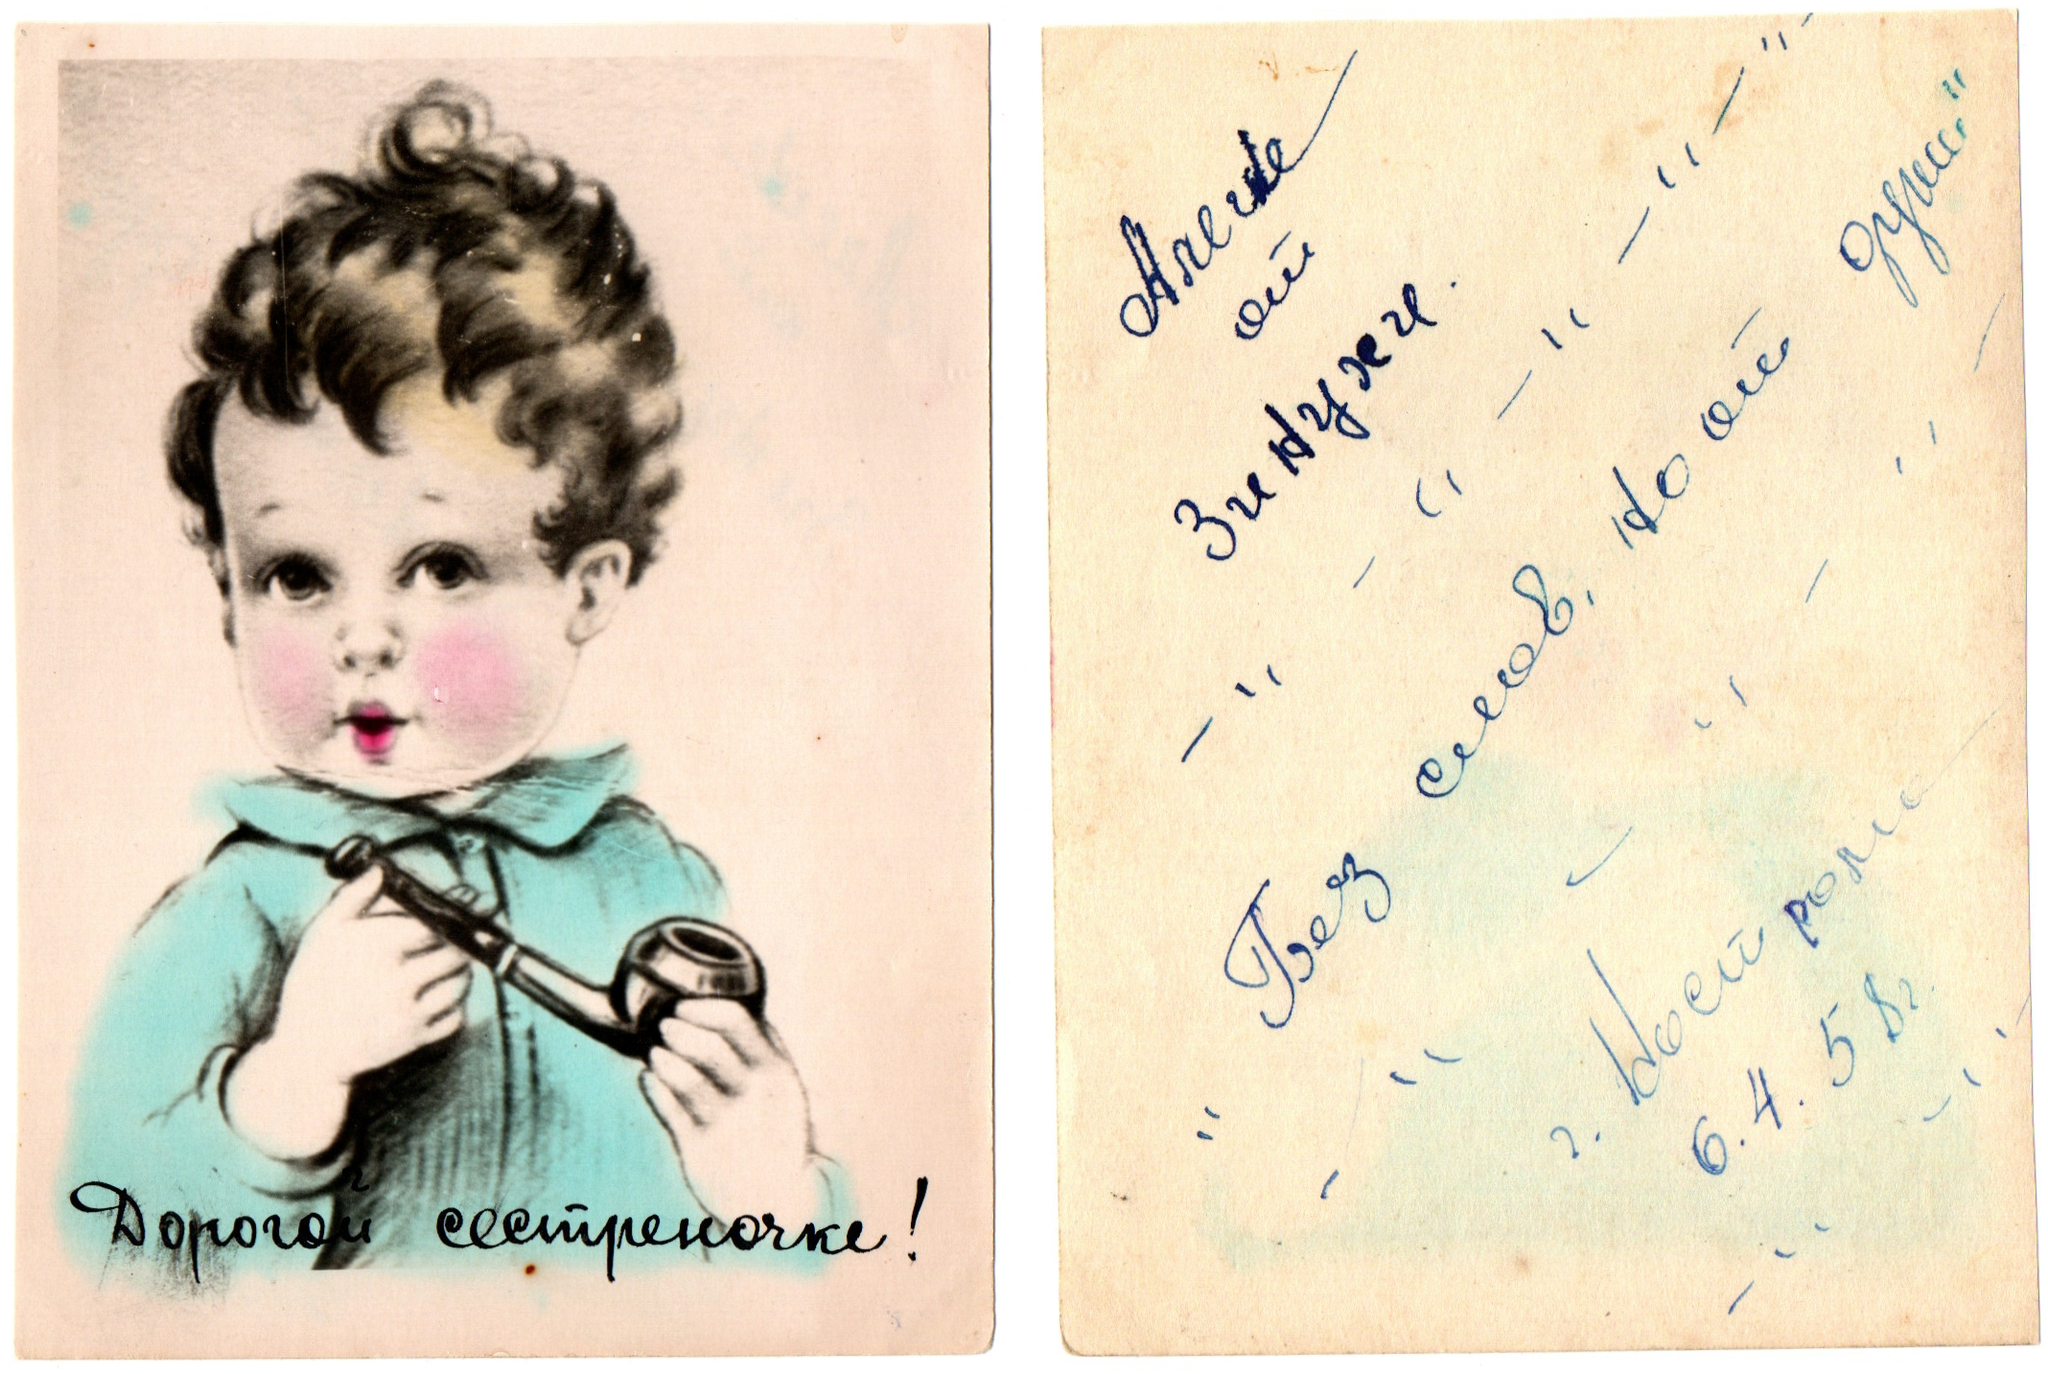 Дорогой сестреночке!
Алечке
от
Зинухи.
"Без слов, но от души"
г. Кострома
6.4.58г.